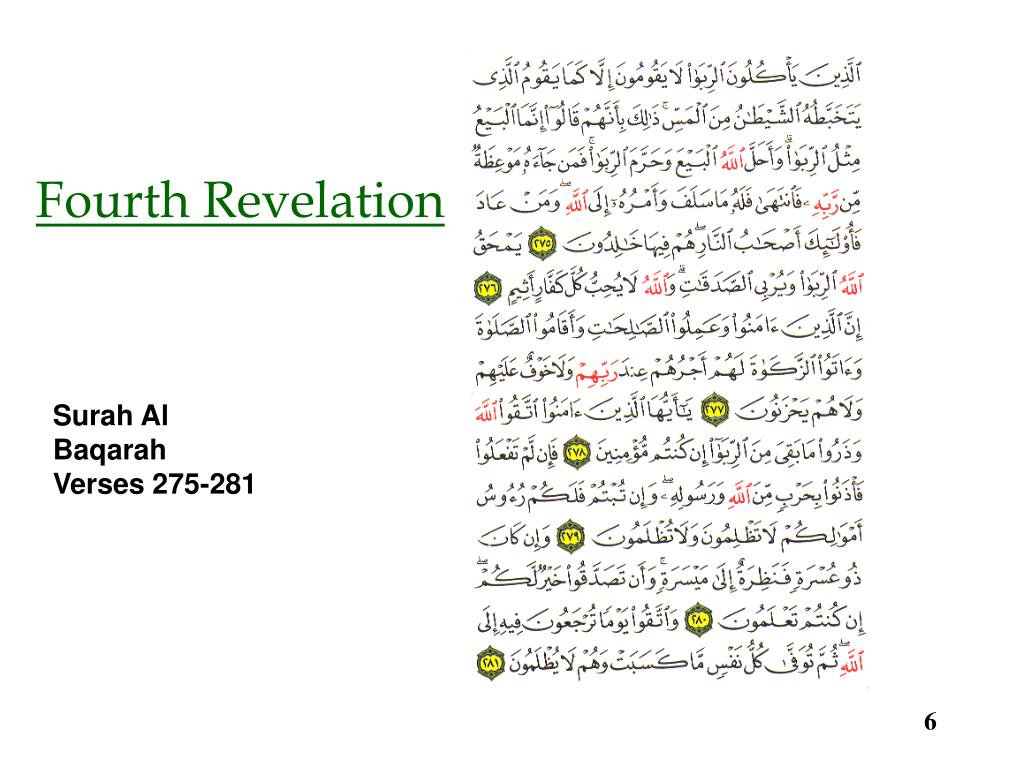 Fourth Revelation
Surah Al
Baqarah
Verses 275-281
ٱلَّذِينَ يَأۡكُلُونَ ٱلرِّبَوٰاْ لَا يَقُومُونَ إِلَّا كَمَا يَقُومُ ٱلَّذِى
يَتَخَبَّطُهُ ٱلشَّيۡطَـٰنُ مِنَ ٱلۡمَسِّۚ ذَٰلِكَ بِأَنَّهُمۡ قَالُوٓاْ إِنَّمَا ٱلۡبَيۡعُ
مِثۡلُ ٱلرِّبَوٰاْۗ وَأَحَلَّ ٱللَّهُ ٱلۡبَيۡعَ وَحَرَّمَ ٱلرِّبَوٰاْۚ فَمَن جَآءَهُۥ مَوۡعِظَةٌ
مِّن رَّبِّهِۦ فَٱنتَهَىٰ فَلَهُۥ مَا سَلَفَ وَأَمۡرُهُۥٓ إِلَى ٱللَّهِۖ وَمَنۡ عَادَ
فَأُوْلَـٰٓئِكَ أَصۡحَـٰبُ ٱلنَّارِۖ هُمۡ فِيهَا خَـٰلِدُونَ ٢٧٥ يَمۡحَقُ
ٱللَّهُ ٱلرِّبَوٰاْ وَيُرۡبِى ٱلصَّدَقَـٰتِۗ وَٱللَّهُ لَا يُحِبُّ كُلَّ كَفَّارٍ أَثِيمٍ ٢٧٦
إِنَّ ٱلَّذِينَ ءَامَنُواْ وَعَمِلُواْ ٱلصَّـٰلِحَـٰتِ وَأَقَامُواْ ٱلصَّلَوٰةَ
وَءَاتَوُاْ ٱلزَّكَوٰةَ لَهُمۡ أَجۡرُهُمۡ عِندَ رَبِّهِمۡ وَلَا خَوۡفٌ عَلَيۡهِمۡ
وَلَا هُمۡ يَحۡزَنُونَ ٢٧٧ يَـٰٓأَيُّهَا ٱلَّذِينَ ءَامَنُواْ ٱتَّقُواْ ٱللَّهَ
وَذَرُواْ مَا بَقِىَ مِنَ ٱلرِّبَوٰٓاْ إِن كُنتُم مُّؤۡمِنِينَ ٢٧٨ فَإِن لَّمۡ تَفۡعَلُواْ
فَأۡذَنُواْ بِحَرۡبٍ مِّنَ ٱللَّهِ وَرَسُولِهِۦۖ وَإِن تُبۡتُمۡ فَلَكُمۡ رُءُوسُ
أَمۡوَٰلِكُمۡ لَا تَظۡلِمُونَ وَلَا تُظۡلَمُونَ ٢٧٩ وَإِن كَانَ
ذُو عُسۡرَةٍ فَنَظِرَةٌ إِلَىٰ مَيۡسَرَةٍۚ وَأَن تَصَدَّقُواْ خَيۡرٌ لَّكُمۡۖ
إِن كُنتُمۡ تَعۡلَمُونَ ٢٨٠ وَٱتَّقُواْ يَوۡمًا تُرۡجَعُونَ فِيهِ إِلَى
ٱللَّهِۖ ثُمَّ تُوَفَّىٰ كُلُّ نَفۡسٍ مَّا كَسَبَتۡ وَهُمۡ لَا يُظۡلَمُونَ ٢٨١
6